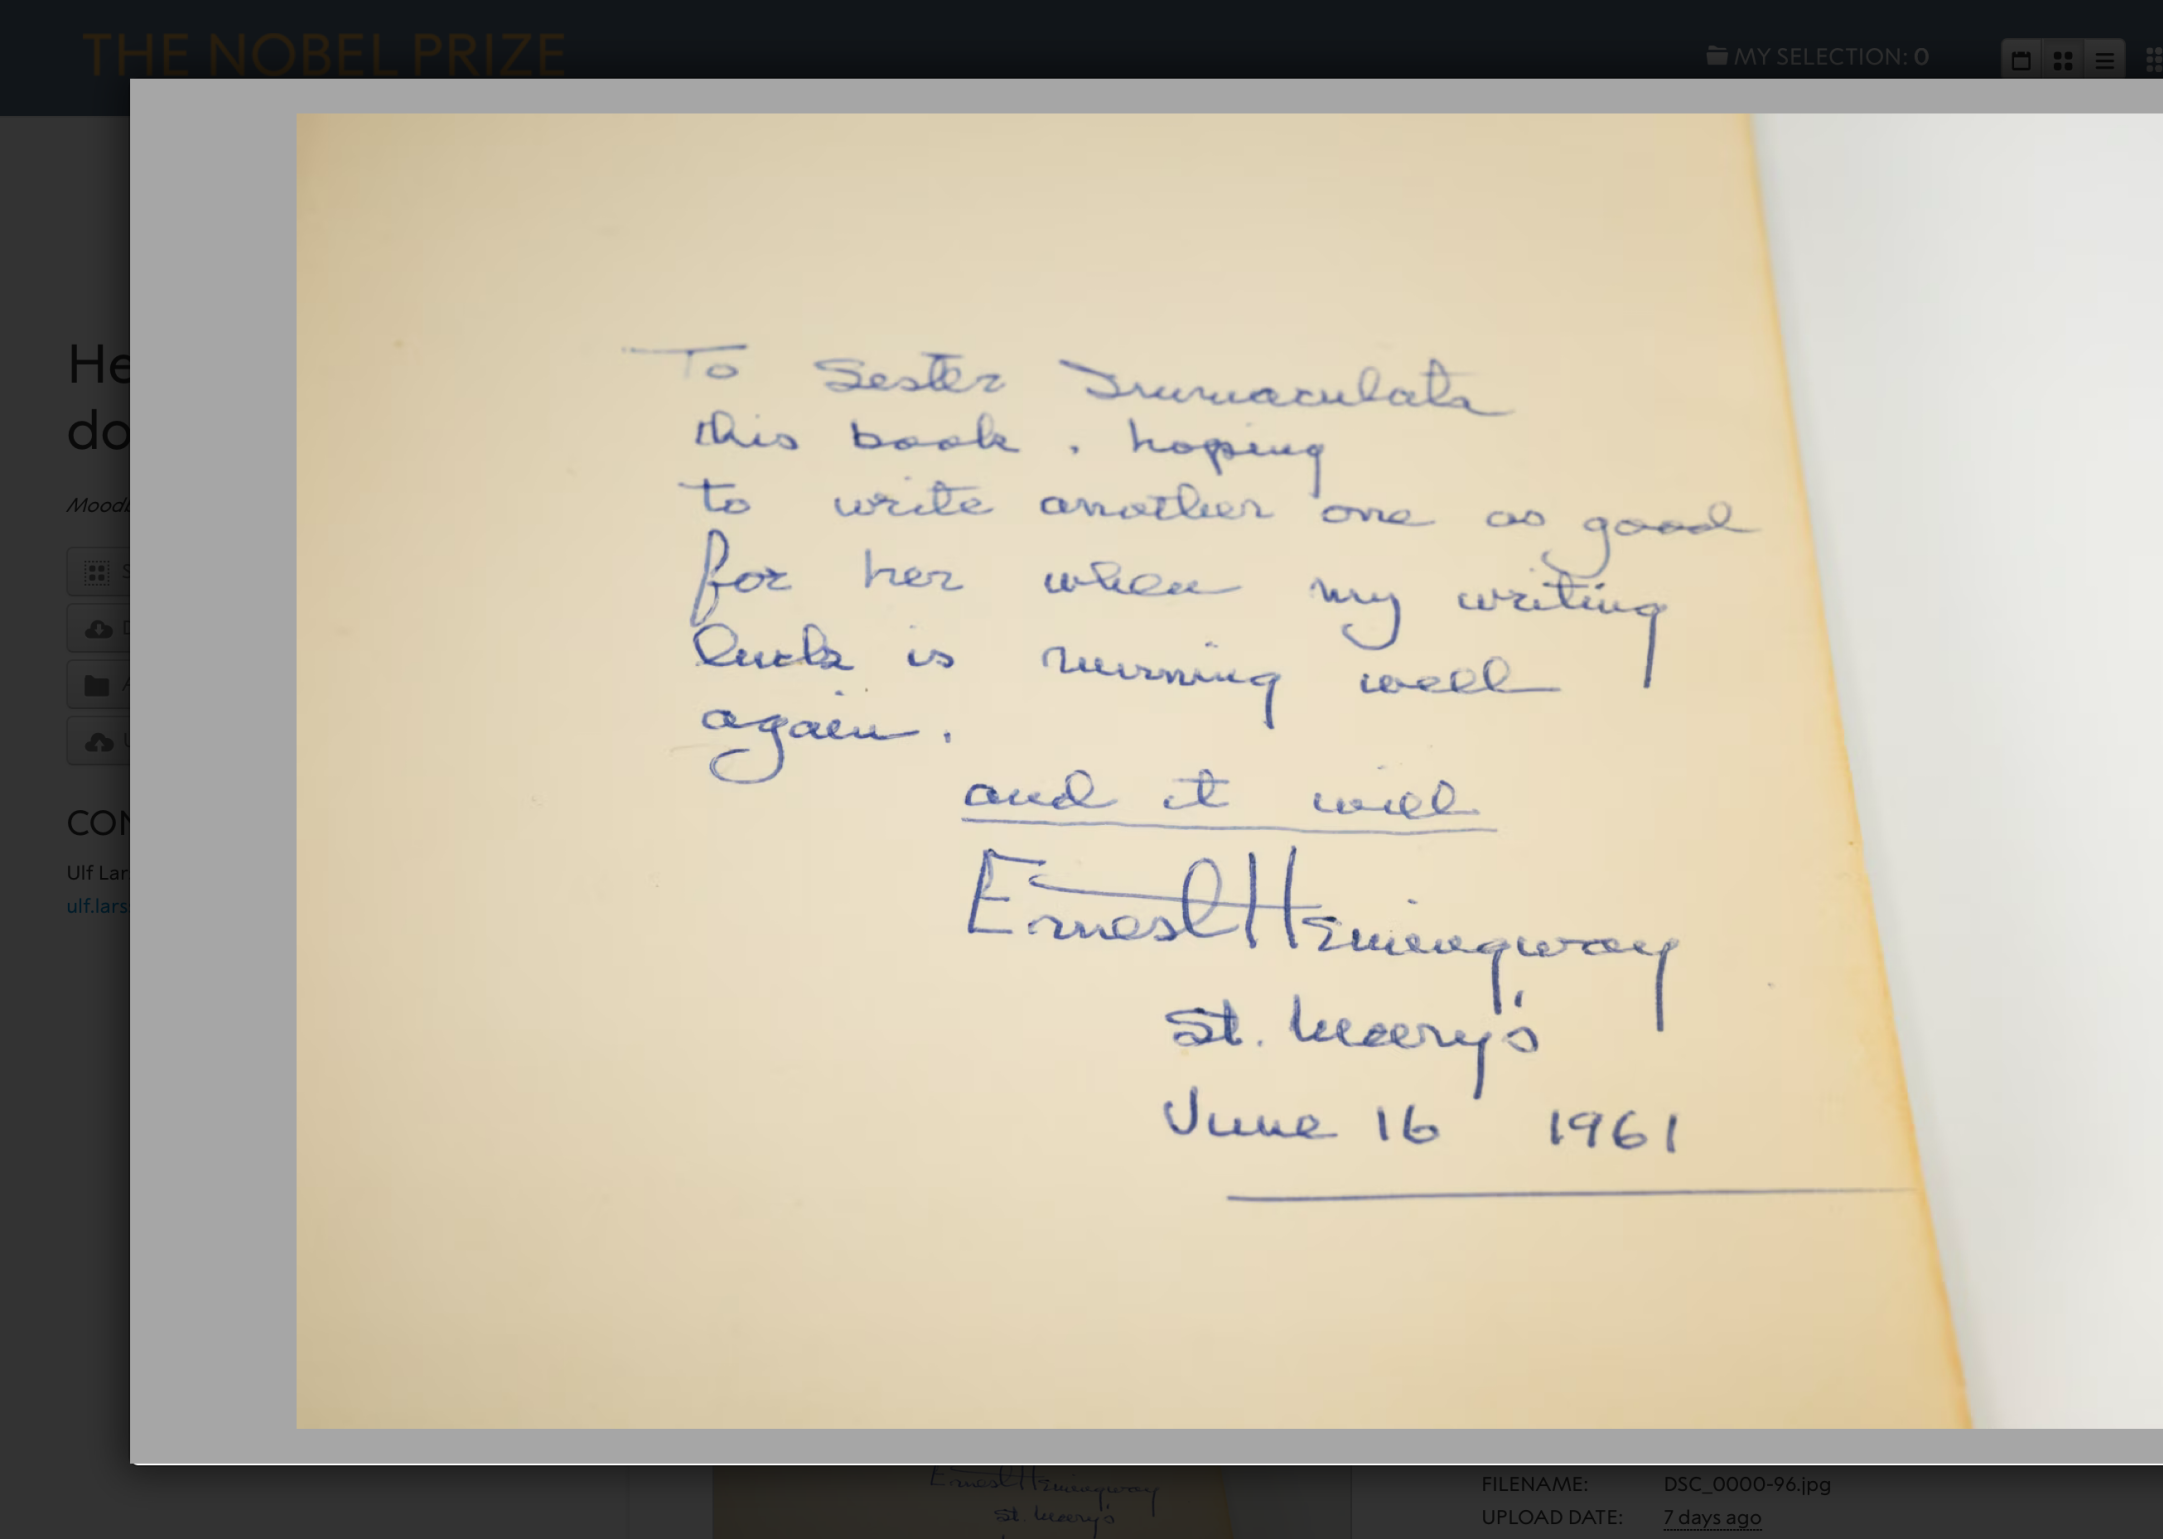 THE NOBEL PRIZE
MY SELECTION: 0
He
do
Moodb
CON
Ulf Lar
ulf.lars
To Sister Immaculata
this book . hoping
to write another one as good
for her when my writing
luck is running well
again.
and it will
Ernest Hemingway
St. Mary's
June 16 1961
Ernest Hemingway
St. Mary's
FILENAME: DSC_0000-96.jpg
UPLOAD DATE: 7 days ago